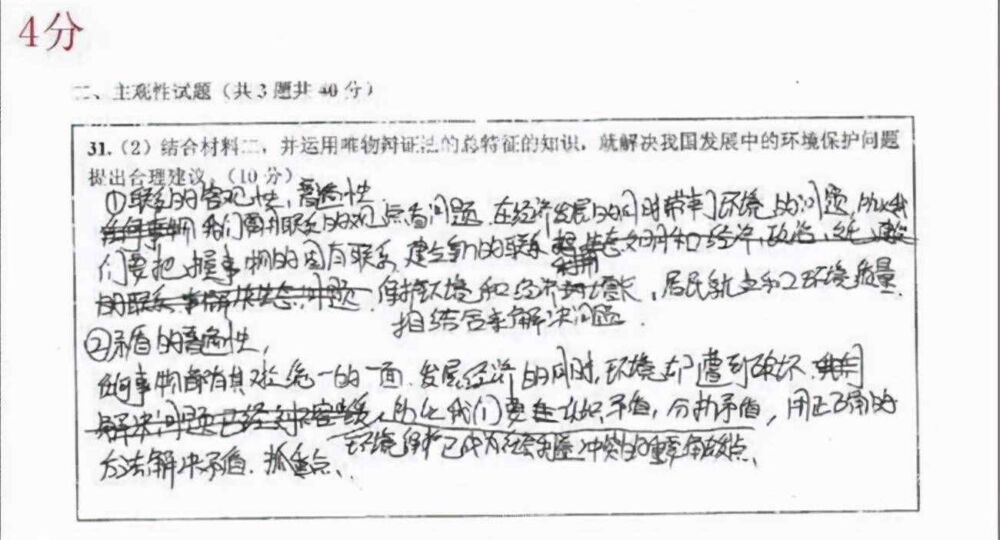 4分
二、主观性试题（共3题共40分）
31.（2）结合材料二，并运用唯物辩证法的总特征的知识，就解决我国发展中的环境保护问题
提出合理建议。（10分）
①联系的客观性，普遍性
任何事物 我们要用联系的观点看问题.在经济发展的同时带来了环境的问题,所以我
们要把握事物的固有联系.建立新的联系 生态文明和经济、政治、
利用
的联系 来解决生态问题.保持环境和经济增长,居民就业和环境质量
相结合来解决问题.
②矛盾的普遍性,
任何事物都有其对立统一的一面.发展经济的同时,环境却遭到破坏.
解决问题已经刻不容缓,所以我们要 认识矛盾,分析矛盾,用正确的
环境保护已成为 冲突的重要 点、
方法解决矛盾.抓重点、